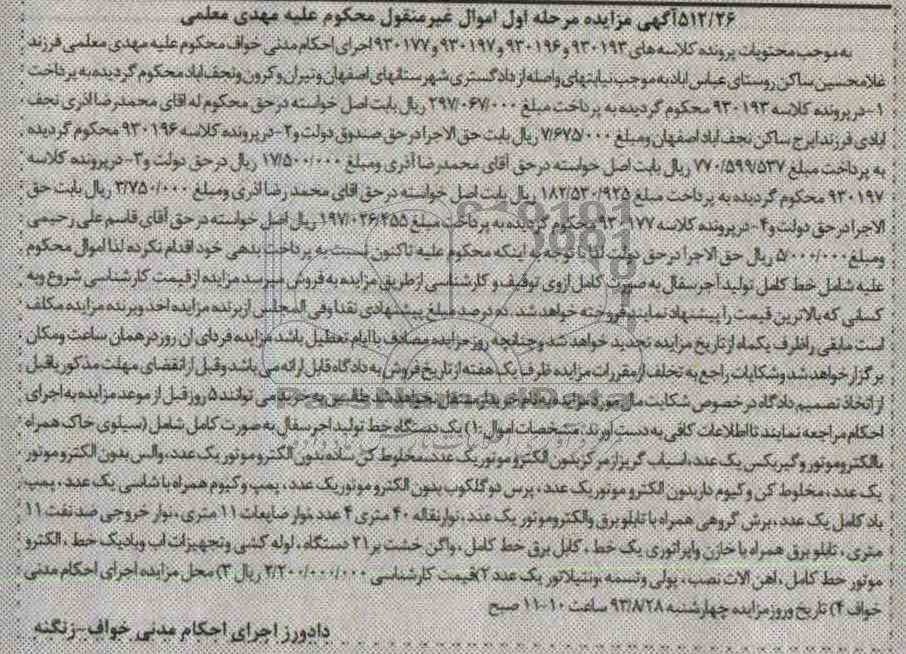 ۵۱۲/۲۶آگهی مزایده مرحله اول اموال غیرمنقول محکوم علیه مهدی معلمی
به موجب محتویات پرونده کلاسه های ۹۳۰۱۹۳ و ۹۳۰۱۹۶ و ۹۳۰۱۹۷ و ۹۳۰۱۷۷ اجرای احکام مدنی خواف محکوم علیه مهدی معلمی فرزند
غلامحسین ساکن روستای عباس اباد به موجب نیابتهای واصله از دادگستری شهرستانهای اصفهان و تیران و کرون و نجف اباد محکوم گردیده به پرداخت
۱-در پرونده کلاسه ۹۳۰۱۹۳ محکوم گردیده به پرداخت مبلغ ۲۹۷/۰۶۷/۰۰۰ ریال بابت اصل خواسته درحق محکوم له اقای محمدرضا اذری نجف
ابادی فرزند ایرج ساکن نجف اباد اصفهان ومبلغ ۷/۶۷۵/۰۰۰ ریال بابت حق الاجرا درحق صندوق دولت و۲-در پرونده کلاسه ۹۳۰۱۹۶ محکوم گردیده
به پرداخت مبلغ ۷۷۰/۵۹۹/۵۳۷ ریال بابت اصل خواسته درحق آقای محمدرضا آذری ومبلغ ۱۷/۵۰۰/۰۰۰ ریال درحق دولت و۳-درپرونده کلاسه
۹۳۰۱۹۷ محکوم گردیده به پرداخت مبلغ ۱۸۲/۵۳۰/۹۲۵ ریال بابت اصل خواسته درحق اقای محمد رضا اذری ومبلغ ۳/۷۵۰/۰۰۰ ریال بابت حق
الاجرا درحق دولت و۴-درپرونده کلاسه ۹۳۰۱۷۷ محکوم گردیده به پرداخت مبلغ ۱۹۷/۰۲۶/۴۵۵ ریال اصل خواسته درحق آقای قاسم علی رحیمی
ومبلغ ۵/۰۰۰/۰۰۰ ریال حق الاجرا درحق دولت لذا با توجه به اینکه محکوم علیه تاکنون نسبت به پرداخت بدهی خود اقدام نکرده لذا اموال محکوم
علیه شامل خط کامل تولید آجر سفال به صورت کامل ازوی توقیف و کارشناسی ازطریق مزایده به فروش میرسد مزایده ازقیمت کارشناسی شروع وبه
کسانی که بالاترین قیمت را پیشنهاد نمایند فروخته خواهد شد. ده درصد مبلغ پیشنهادی نقدا وفی المجلس ازبرنده مزایده اخذ وبرنده مزایده مکلف
است مابقی را ظرف یکماه ازتاریخ مزایده تحدید خواهد شد وچنانچه روز مزایده مصادف با ایام تعطیل باشد مزایده فردای ان روز درهمان ساعت ومکان
برگزار خواهد شد وشکایات راجع به تخلف ازمقررات مزایده ظرف یک هفته از تاریخ فروش به دادگاه قابل ارائه می باشد وقبل از انقضای مهلت مذکور یاقبل
از اتخاذ تصمیم دادگاه درخصوص شکایت مال مورد مزایده به نام خریدار منتقل نخواهد شد طالبین به خرید می توانند ۵ روز قبل از موعد مزایده به اجرای
احکام مراجعه نمایند تا اطلاعات کافی به دست آورند.مشخصات اموال:۱) یک دستگاه خط تولید اجر سفال به صورت کامل شامل (سیلوی خاک همراه
باالکتروموتور وگیربکس یک عدد،اسیاب گریز از مرکز بدون الکتروموتور یک عدد،مخلوط کن ساده بدون الکتروموتور یک عدد، والس بدون الکتروموتور
یک عدد ، مخلوط کن وکیوم دار بدون الکتروموتور یک عدد ، پرس دوگلکوب بدون الکتروموتور یک عدد ، پمپ وکیوم همراه با شاسی یک عدد ، پمپ
باد کامل یک عدد ، برش گروهی همراه با تابلو برق والکتروموتور یک عدد ، نوارنقاله ۴۰ متری ۴ عدد نوار ضایعات ۱۱ متری ، نوار خروجی صد نفت ۱۱
متری ، تابلو برق همراه با خازن واپراتوری یک خط ، کابل برق خط کامل ، واگن خشت بر ۲۱ دستگاه ، لوله کشی وتجهیزات اب وبادیک خط ، الکترو
موتور خط کامل ، اهن الات نصب ، پولی وتسمه ،ونتیلاتور یک عدد ۲)قیمت کارشناسی ۲/۲۰۰/۰۰۰/۰۰۰ ریال ۳) محل مزایده اجرای احکام مدنی
خواف ۴) تاریخ وروزمزایده چهارشنبه ۹۳/۸/۲۸ ساعت ۱۰-۱۱ صبح
دادورز اجرای احکام مدنی خواف-زنگنه